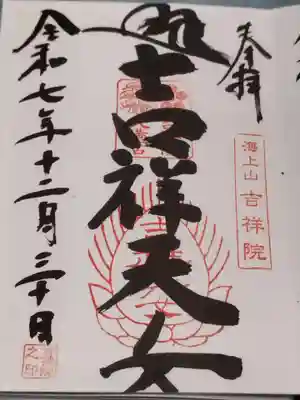 奉拝
海上山 吉祥院
吉祥天女
令和七年十二月三十日